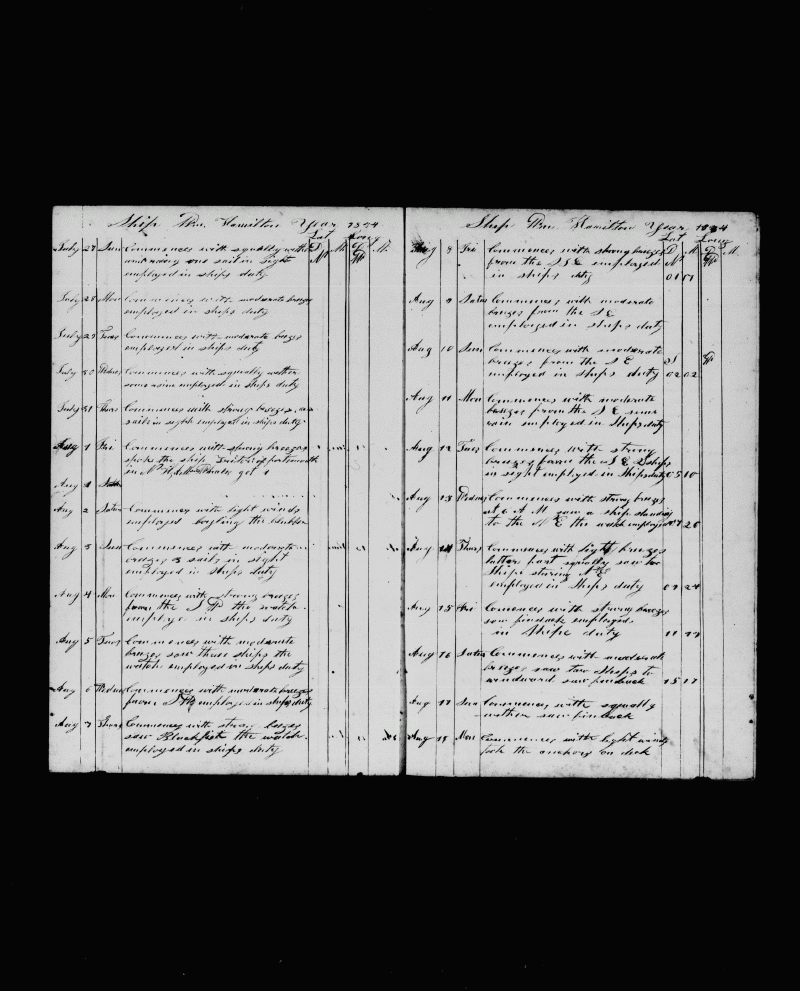 Ship Wm. Hamilton Year 1834
Lat Long
July 27 Sun Commences with squally wether D M D M
and rainy one sail in sight N W
employed in ships duty
July 28 Mon Commences with moderate breezes
employed in ships duty
July 29 Tues Commences with moderate breezes
employed in ships duty
July 30 Wednes Commences with squally wether
some rain employed in ships duty
July 31 Thurs Commences with strong breezes
sails in sight employed in ships duty
Aug 1 Fri Commences with strong breezes
spoke the ship of portsmouth
in
Aug
Aug 2 Satur Commences with light winds
employed boyling the blubber
Aug 3 Sun Commences with moderate
breezes sails in sight
employed in ships duty
Aug 4 Mon Commences with strong breezes
from the S W the watch
employe in ships duty
Aug 5 Tues Commences with moderate
breezes saw three ships the
watch employed in ships duty
Aug 6 Wednes Commences with moderate breezes
from S W employed in ships duty
Aug 7 Thurs Commences with strong breezes
saw Blackfish the watch
employed in ships duty
Ship Wm. Hamilton Year 1834
Lat Long
Aug 8 Fri Commences with strong breezes D M D M
from the S S E employed N W
in ships duty 01 01
Aug 9 Satur Commences with moderate
breezes from the S E
employed in ships duty
Aug 10 Sun Commences with moderate
breezes from the S E S W
employed in ships duty 02 02
Aug 11 Mon Commences with moderate
breezes from the S E some
rain employed in ships duty
Aug 12 Tues Commences with strong
breezes from the S E 2 ships
in sight employed in ships duty 05 10
Aug 13 Wednes Commences with strong breezes
at 6 A M saw a ship standing
to the N E the watch employed 07 26
Aug 14 Thurs Commences with light breezes
latter part squally saw two
Ships staring N E
employed in Ships duty 09 24
Aug 15 Fri Comences with strong breezes
saw finback employed
in Ships duty 11
Aug 16 Satur Commences with moderate
breezes saw two Ships to
windward saw finback 15 17
Aug 17 Sun Commences with squally
wether saw finback
Aug 18 Mon Commences with light winds
took the anchors on deck